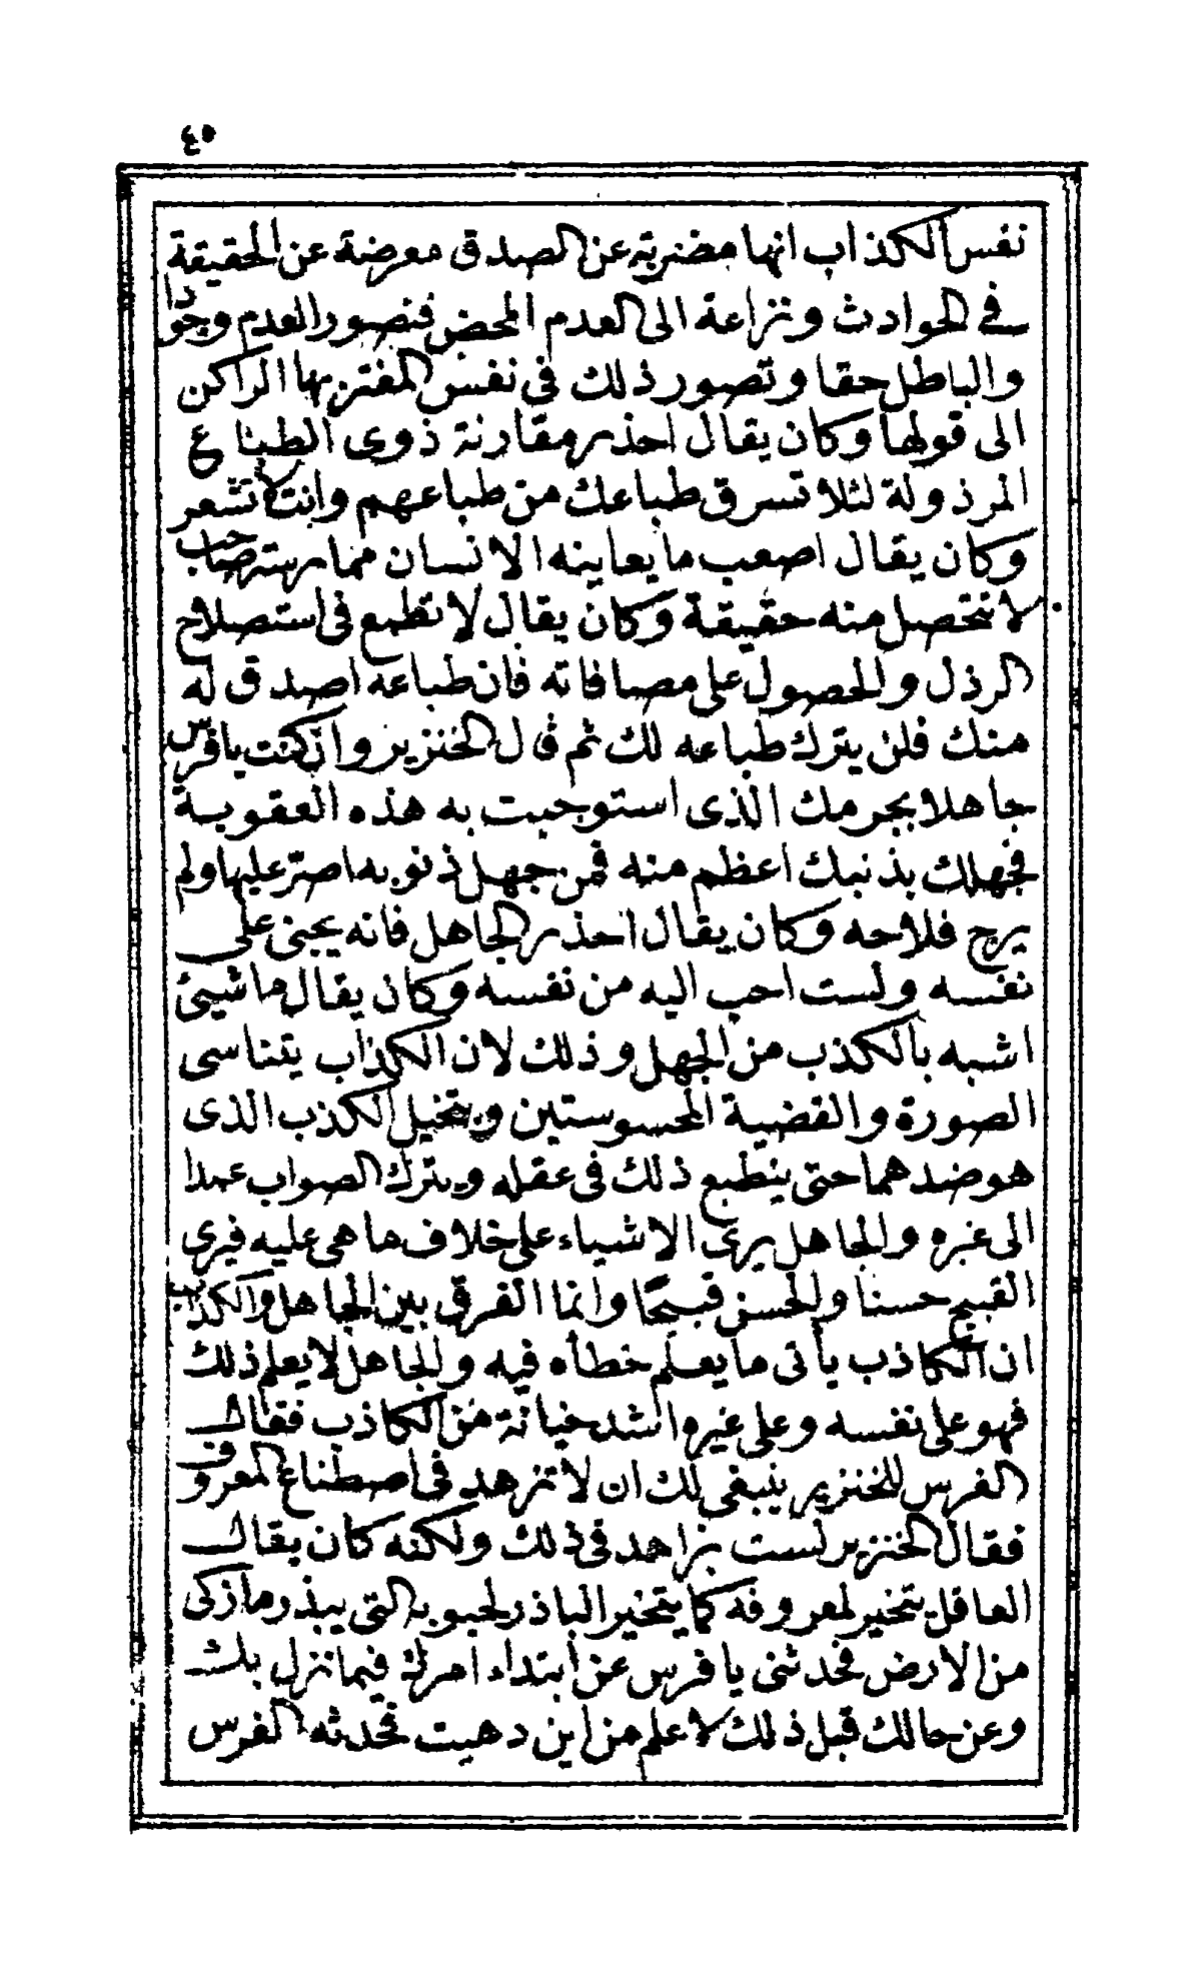 ٤٥
نفس الكذاب انها مضربة عن الصدق معرضة عن الحقيقة
في الحوادث ونزاعة الى العدم المحض فتصور العدم وجودا
والباطل حقا وتصور ذلك في نفس المغتر بها الراكن
الى قولها وكان يقال احذر مقارنة ذوى الطباع
المرذولة لئلا تسرق طباعك من طباعهم وانت لا تشعر
وكان يقال اصعب ما يعاينه الانسان ممارسته صاحب
لا تتحصل منه حقيقة وكان يقال لا تطمع في استصلاح
الرذل والحصول على مصافاته فان طباعه اصدق له
منك فلن يترك طباعه لك ثم قال الخنزير وان كنت يا فرس
جاهلا بجرمك الذى استوجبت به هذه العقوبة
فجهلك بذنبك اعظم منه فمن جهل ذنوبه اصرّ عليها ولم
يرج فلاحه وكان يقال احذر الجاهل فانه يجنى على
نفسه ولست احب اليه من نفسه وكان يقال ما شيئ
اشبه بالكذب من الجهل وذلك لان الكذاب يتناسى
الصورة والقضية المحسوستين ويتخيل الكذب الذى
هو ضدهما حتى ينطبع ذلك في عقله ويترك الصواب عمدا
الى غيره والجاهل يرى الاشياء على خلاف ما هى عليه فيرى
القبيح حسنا والحسن قبيحا وانما الفرق بين الجاهل والكذب
ان الكاذب يأتى ما يعلم خطأه فيه والجاهل لا يعلم ذلك
فهو على نفسه وعلى غيره اشد خيانة من الكاذب فقال
الفرس للخنزير ينبغى لك ان لا تزهد في اصطناع المعروف
فقال الخنزير لست بزاهد في ذلك ولكنه كان يقال
العاقل يتخير لمعروفه كما يتخير الباذر لحبوبه التى يبذر ما زكى
من الارض فحدثنى يا فرس عن ابتداء امرك فيما نزل بك
وعن حالك قبل ذلك لا علم من اين دهيت فحدثه الفرس